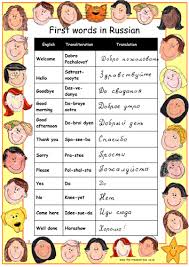 First words in Russian
English Transliteration Translation
Welcome Dobro Pozhalovat' Добро пожаловать
Hello Sdrast-vooyte Здравствуйте
Goodbye Das-ve-danya До свидания
Good morning Do-broye ootro Доброе утро
Good afternoon Do-bry dyen Добрый день
Thank you Spa-see-bo Спасибо
Sorry Pros-tee Прости
Please Po-zhal-sta Пожалуйста
Yes Da Да
No Nyet Нет
Come here Idee-syu-da Иди сюда
Well done Horashow Хорошо!